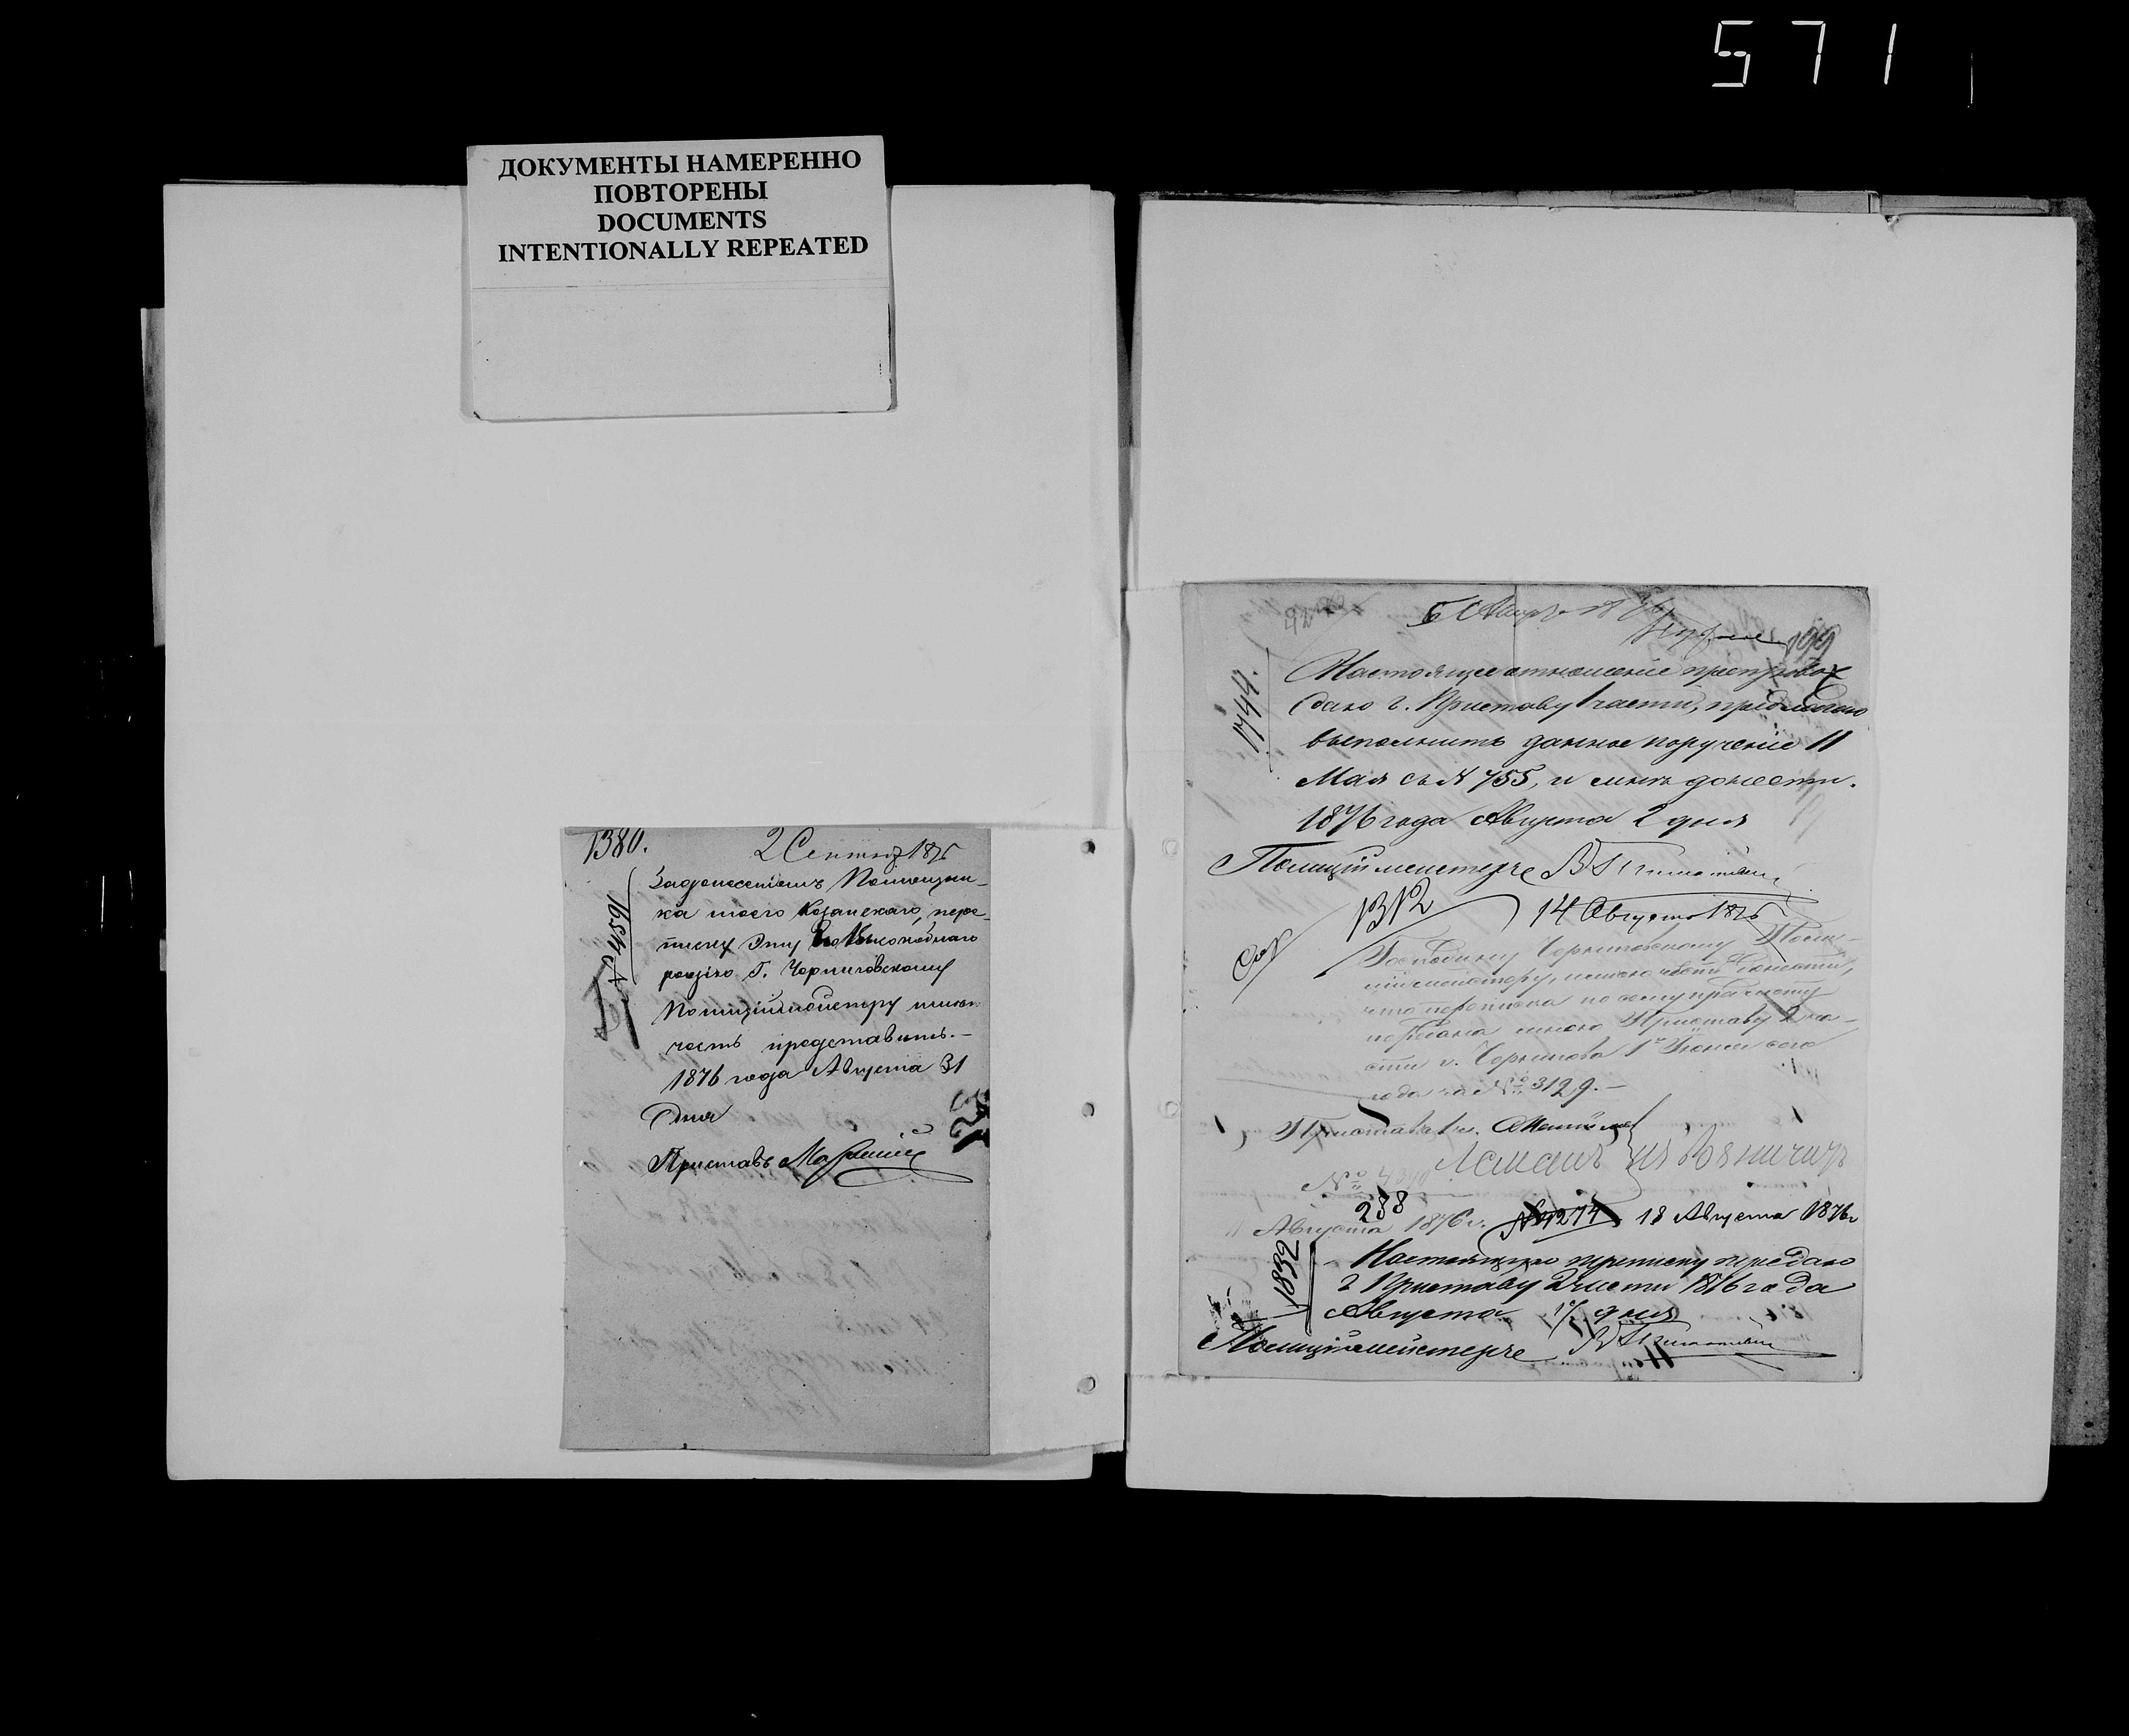 571
ДОКУМЕНТЫ НАМЕРЕННО
ПОВТОРЕНЫ
DOCUMENTS
INTENTIONALLY REPEATED
1380.
2 Сентяб 1876
№ 4591
За донесениемъ Помощни-
ка моего Казанскаго, пере-
писку эту Его Высокоблаго
родію Г. Черниговскому
Полиціймейстеру имѣю
честь представить.-
1876 года Августа 31
Дня
Приставъ
1744.
Настоящее отношеніе препровож
даю г. Приставу 1 части, предлагаю
выполнить данное порученіе 11
Мая съ № 755, и мнѣ донести.
1876 года Августа 2 дня
Полиціймейстеръ
1312
14 Августа 1876
Господину Черниговскому Поли-
ціймейстеру, имѣю честь донести,
что переписка по сему предмету
передана мною Приставу 2 ча-
сти г. Чернигова 1го Іюня сего
года за № 3129.-
Приставъ 1 ч.
№
288
Августа 1876 г. № 1274 18 Августа 1876 г
1832
Настоящую переписку передаю
г Приставу 2 части 1876 года
Августа 17 дня
Полиціймейстеръ